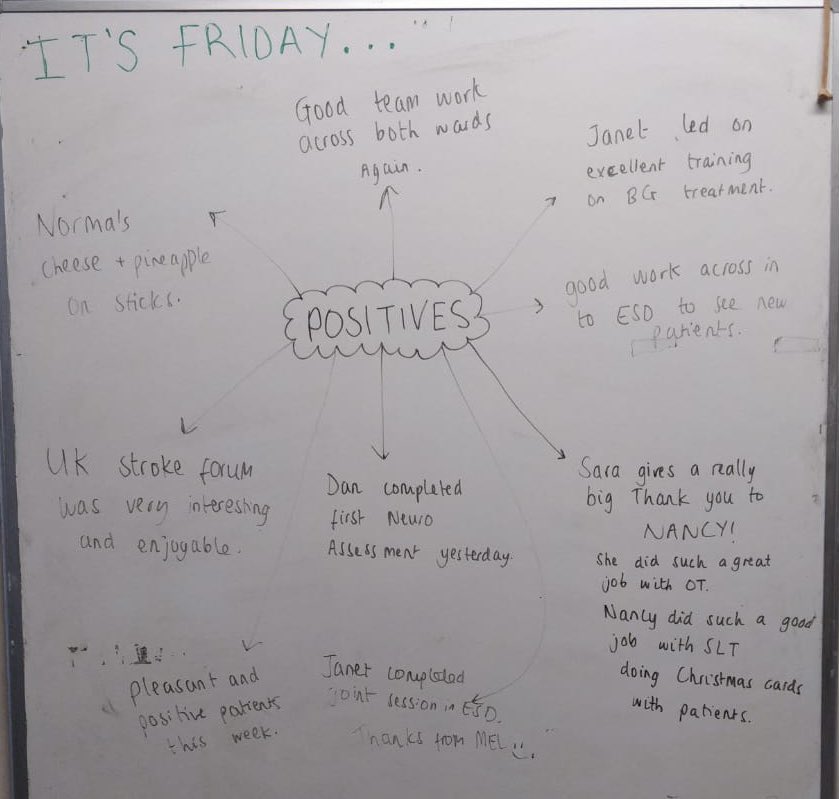 IT'S FRIDAY...
Good team work
across both wards
Again.
Janet led on
excellent training
on BG treatment.
Normals
cheese + pineapple
on sticks.
good work across in
to ESD to see new
patients.
POSITIVES
UK stroke forum
was very interesting
and enjoyable.
Dan completed
first Neuro
Assessment yesterday.
Sara gives a really
big Thank you to
NANCY!
She did such a great
job with OT.
Nancy did such a good
job with SLT
doing Christmas cards
with patients.
pleasant and
positive patients
this week.
Janet completed
joint session in ESD.
Thanks from MEL